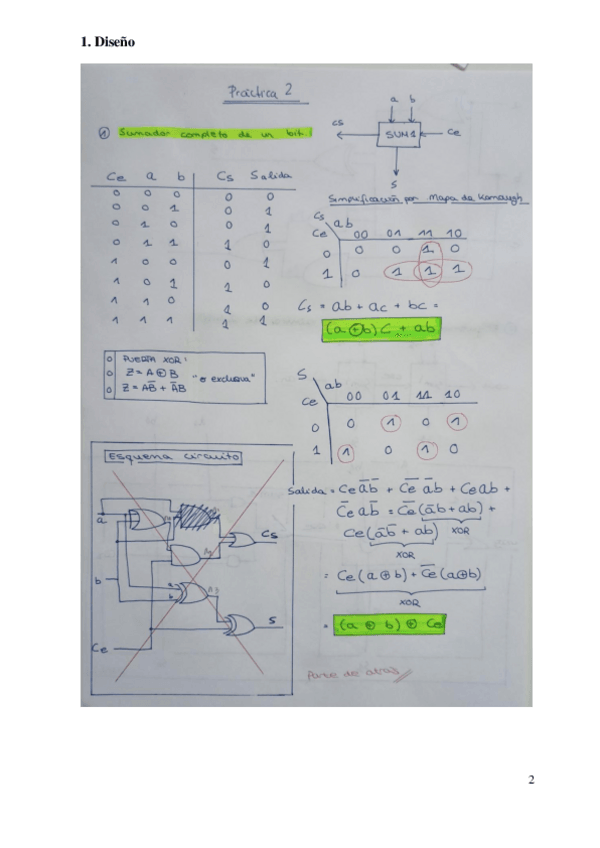 1. Diseño
Práctica 2
① Sumador completo de un bit.
a b
cs SUM1 Ce
S
Ce a b Cs Salida
0 0 0 0 0
0 0 1 0 1
0 1 0 0 1
0 1 1 1 0
1 0 0 0 1
1 0 1 1 0
1 1 0 1 0
1 1 1 1 1
Simplificación por Mapa de Karnaugh
Cs ab
Ce 00 01 11 10
0 0 0 1 0
1 0 1 1 1
Cs = ab + ac + bc =
(a ⊕ b) C + ab
o PUERTA XOR:
o Z = A ⊕ B "o exclusiva"
o Z = AB̅ + A̅B
S ab
Ce 00 01 11 10
0 0 1 0 1
1 1 0 1 0
Esquema circuito
a
b
Ce
Cs
S
Salida = Ce a̅ b̅ + C̅e̅ a̅ b + Ce a b +
= C̅e̅ (a̅b + ab) +
Ce (a̅b̅ + ab) XOR
XOR
= Ce (a ⊕ b) + C̅e̅ (a ⊕ b)
XOR
= (a ⊕ b) ⊕ Ce
Parte de atras
2